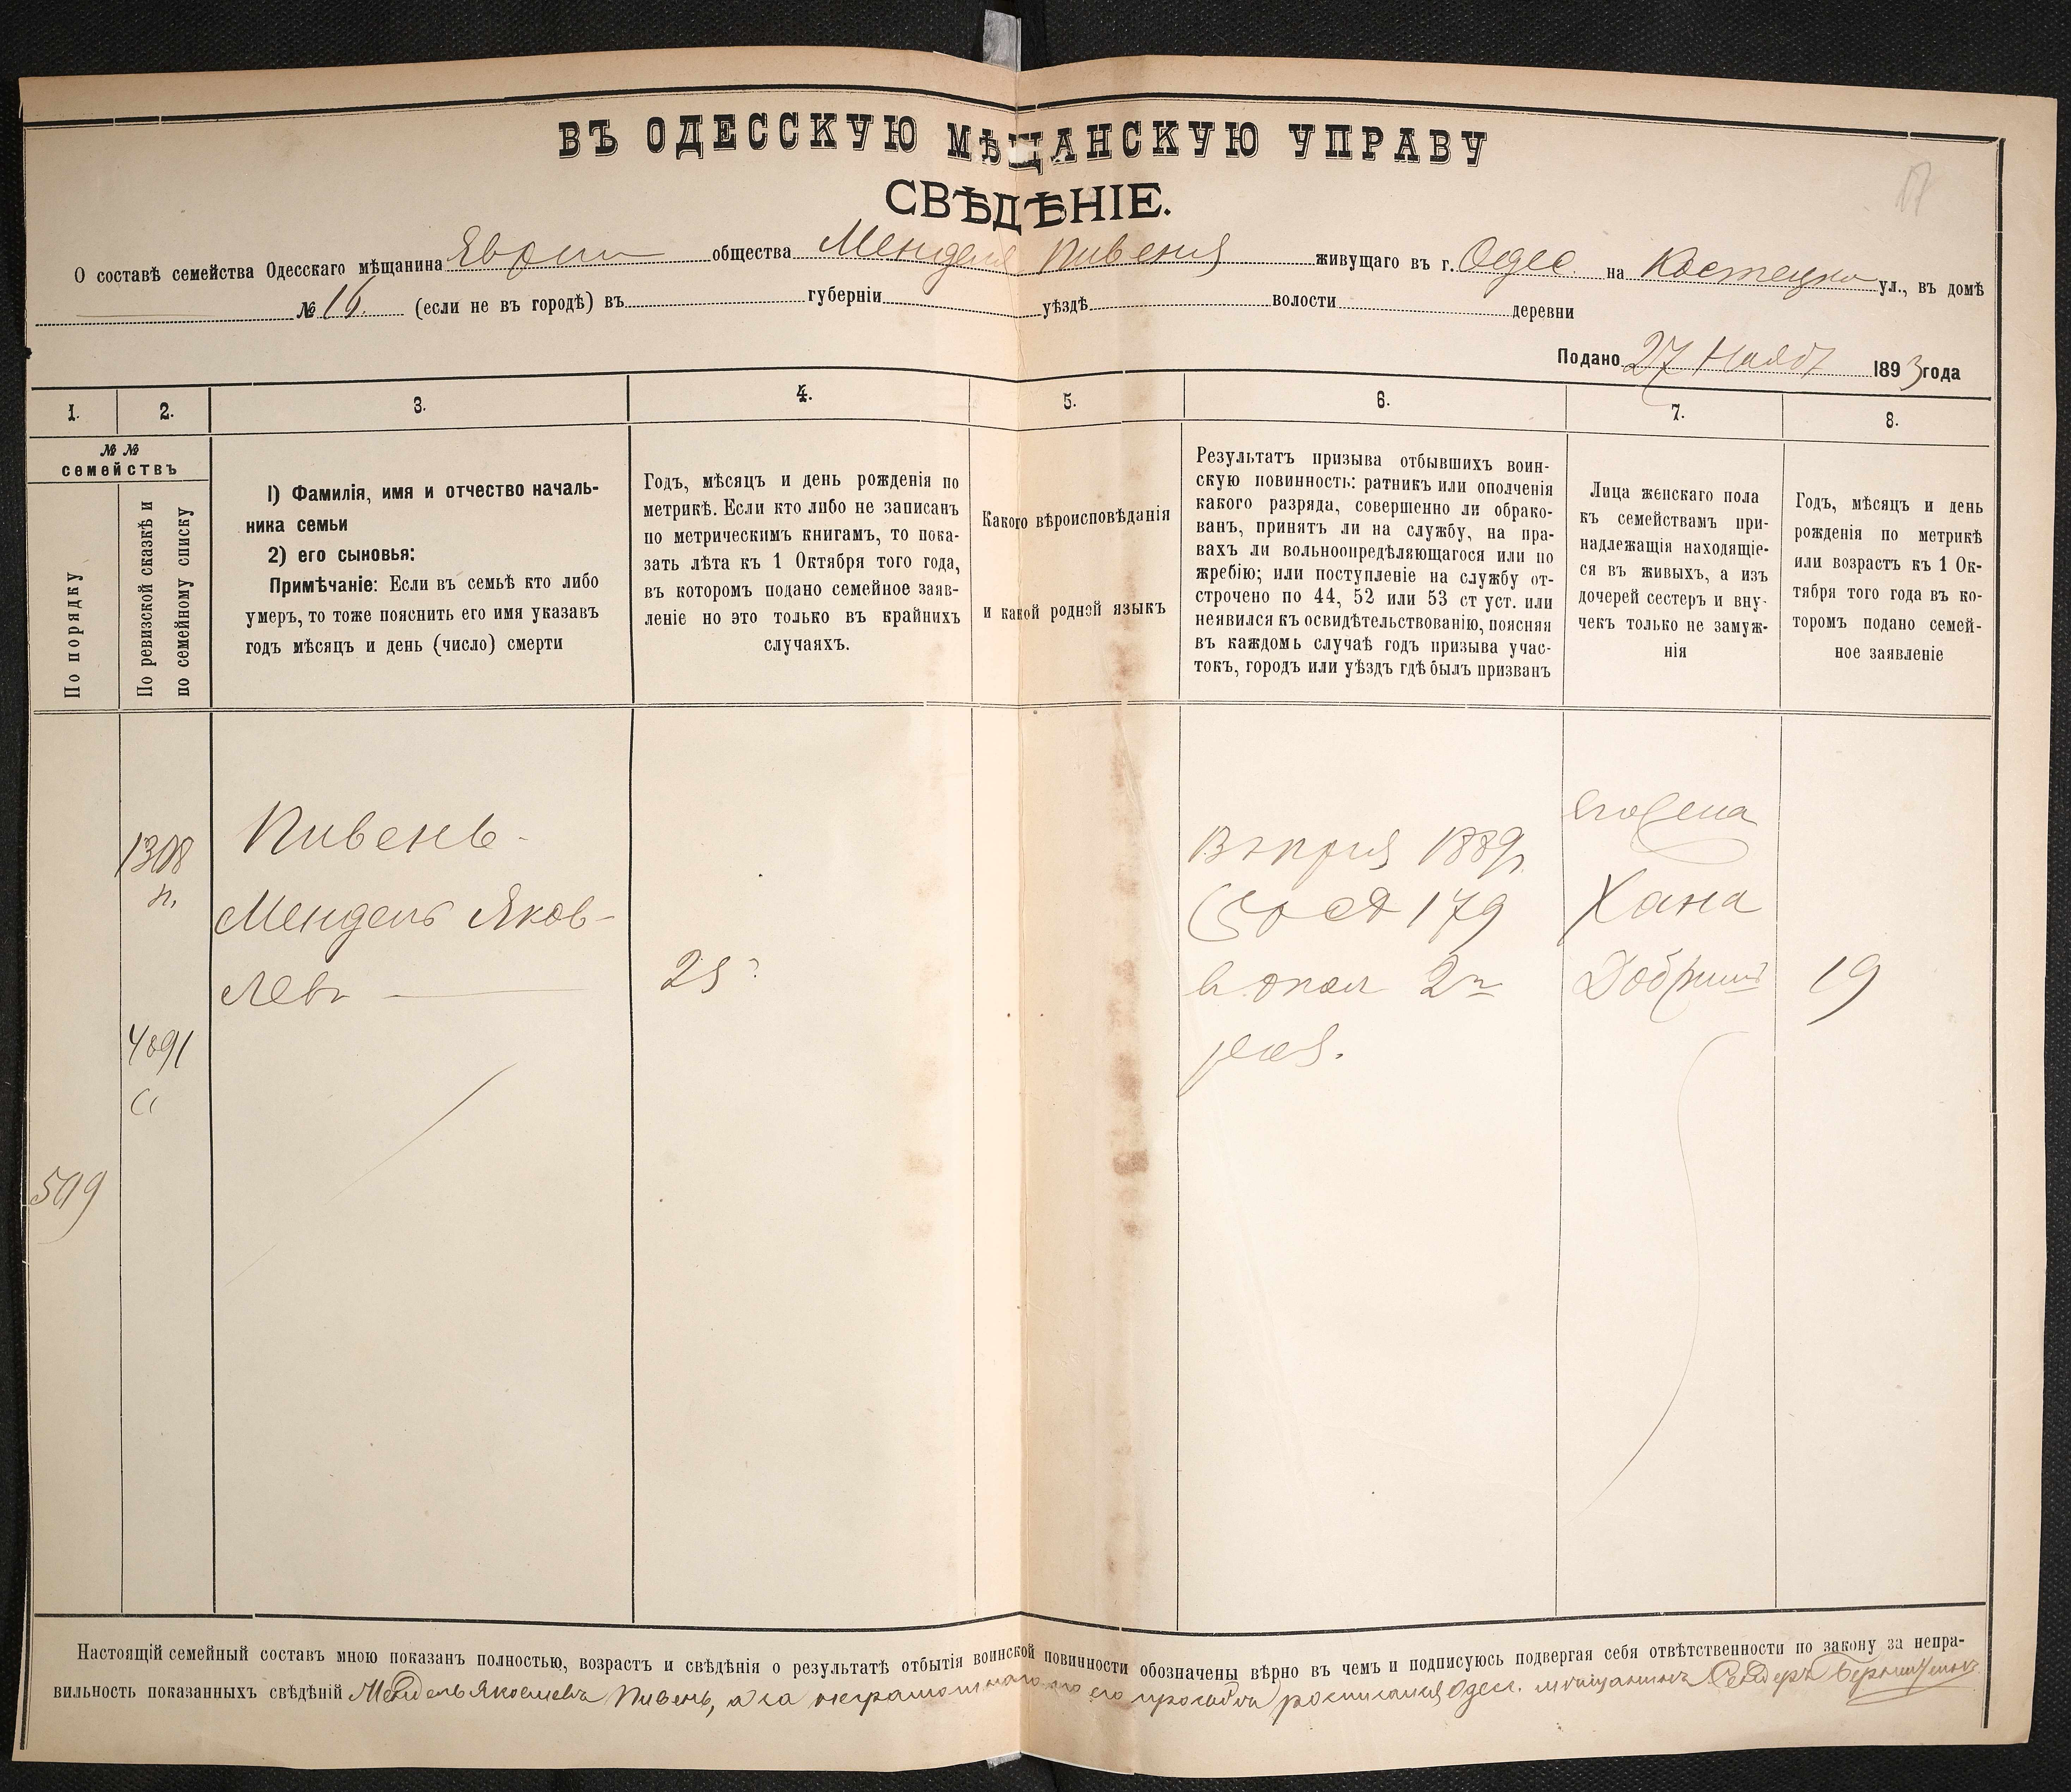 ВЪ ОДЕССКУЮ МѢЩАНСКУЮ УПРАВУ
СВѢДѢНІЕ.
О составѣ семейства Одесскаго мѣщанина общества Менделя Пивеня живущаго въ г. Одес. на Костецкой ул., въ домѣ
№ 16. (если не въ городѣ) въ губерніи уѣздѣ волости деревни
Подано 27 Нояб 1893 года
1.
2.
3.
4.
5.
6.
7.
8.
№ №
семействъ
По порядку
По ревизской сказкѣ и
по семейному списку
1) Фамилія, имя и отчество началь-
ника семьи
2) его сыновья:
Примѣчаніе: Если въ семьѣ кто либо
умеръ, то тоже пояснить его имя указавъ
годъ мѣсяцъ и день (число) смерти
Годъ, мѣсяцъ и день рожденія по
метрикѣ. Если кто либо не записанъ
по метрическимъ книгамъ, то пока-
зать лѣта къ 1 Октября того года,
въ которомъ подано семейное заяв-
леніе но это только въ крайнихъ
случаяхъ.
Какого вѣроисповѣданія
и какой родной языкъ
Результатъ призыва отбывшихъ воин-
скую повинность: ратникъ или ополченія
какого разряда, совершенно ли обрако-
ванъ, принятъ ли на службу, на пра-
вахъ ли вольноопредѣляющагося или по
жребію; или поступленіе на службу от-
строчено по 44, 52 или 53 ст уст. или
неявился къ освидѣтельствованію, поясняя
въ каждомъ случаѣ годъ призыва учас-
токъ, городъ или уѣздъ гдѣ былъ призванъ
Лица женскаго пола
къ семействамъ при-
надлежащія находящіе-
ся въ живыхъ, а изъ
дочерей сестеръ и вну-
чекъ только не замуж-
нія
Годъ, мѣсяцъ и день
рожденія по метрикѣ
или возрастъ къ 1 Ок-
тября того года въ ко-
торомъ подано семей-
ное заявленіе
509
1308
п.
4891
с
Пивень
Мендель Яков-
левъ
25
1889
179
2го
Хана
19
Настоящій семейный составъ мною показанъ полностью, возрастъ и свѣдѣнія о результатѣ отбытія воинской повинности обозначены вѣрно въ чемъ и подписуюсь подвергая себя отвѣтственности по закону за непра-
вильность показанныхъ свѣдѣній Мендель Яковлевъ Пивень, а за неграмотнаго по его просьбѣ росписался Одесс. мѣщанинъ